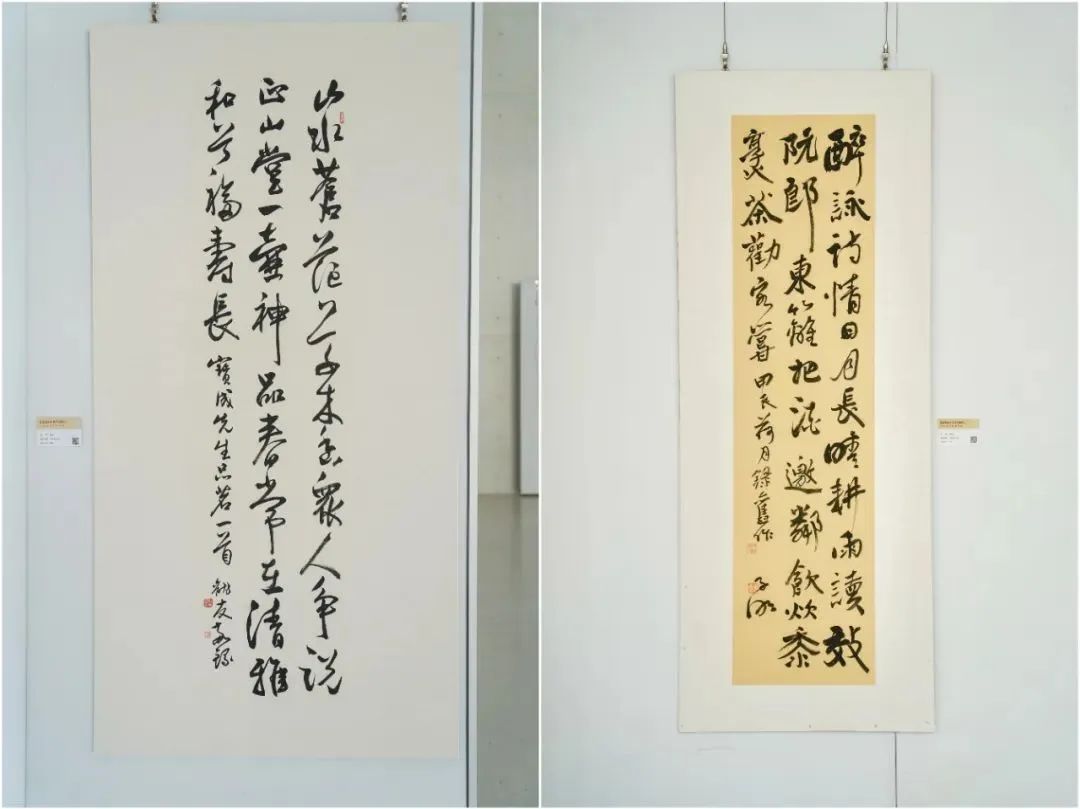 山水蒼茫草木香眾人爭說
正山堂一壺神品春常在清雅
和福壽長 寶成先生品茗一首 友敬錄
醉詠詩情日月長晴耕雨讀效
阮郎東籬把酒邀鄰飲炊黍
烹茶勸客嘗 甲辰荷月錄舊作 子